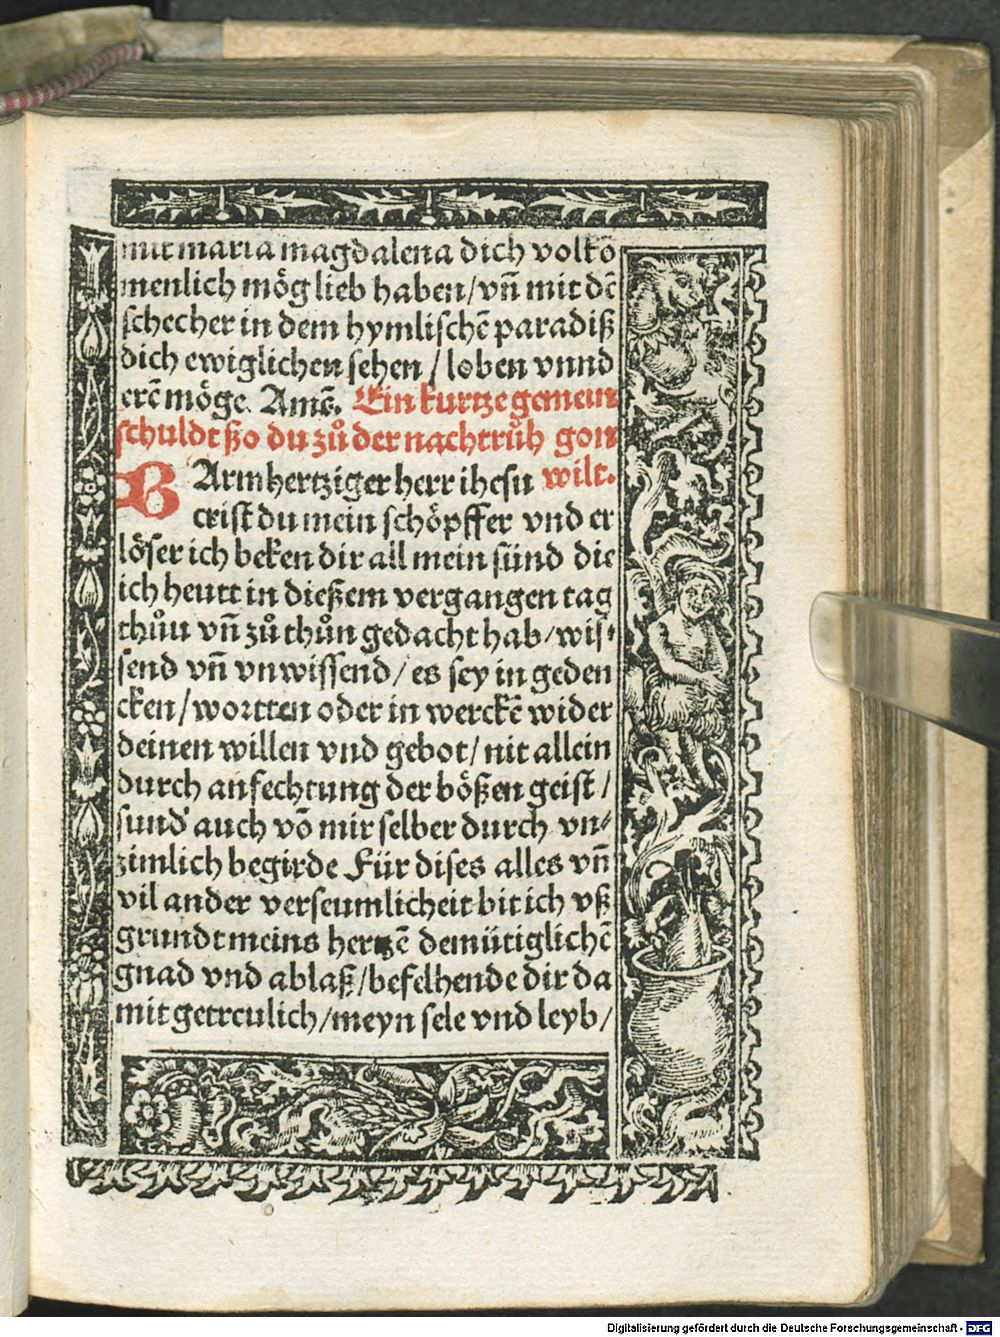 mit maria magdalena dich volkō
menlich mög lieb haben/vn̄ mit dē
schecher in dem hymlischē paradiß
dich ewiglichen sehen / loben vnnd
erē möge. Amē. Ein kurtze gemein
schuldt ßo du zů der nachtrůh gon
wilt.
BArmhertziger herr ihesu
crist du mein schöpffer vnd er
löser ich beken dir all mein sünd die
ich heutt in dießem vergangen tag
thůn vn̄ zů thůn gedacht hab/wis⸗
send vn̄ vnwissend/es sey in geden
cken/wortten oder in werckē wider
deinen willen vnd gebot/nit allein
durch anfechtung der bößen geist/
sund' auch vō mir selber durch vn⸗
zimlich begirde Für dises alles vn̄
vil ander verseumlicheit bit ich vß
grundt meins hertzē demütiglichē
gnad vnd ablaß/befelhende dir da
mit getreulich/meyn sele vnd leyb/
Digitalisierung gefördert durch die Deutsche Forschungsgemeinschaft - DFG